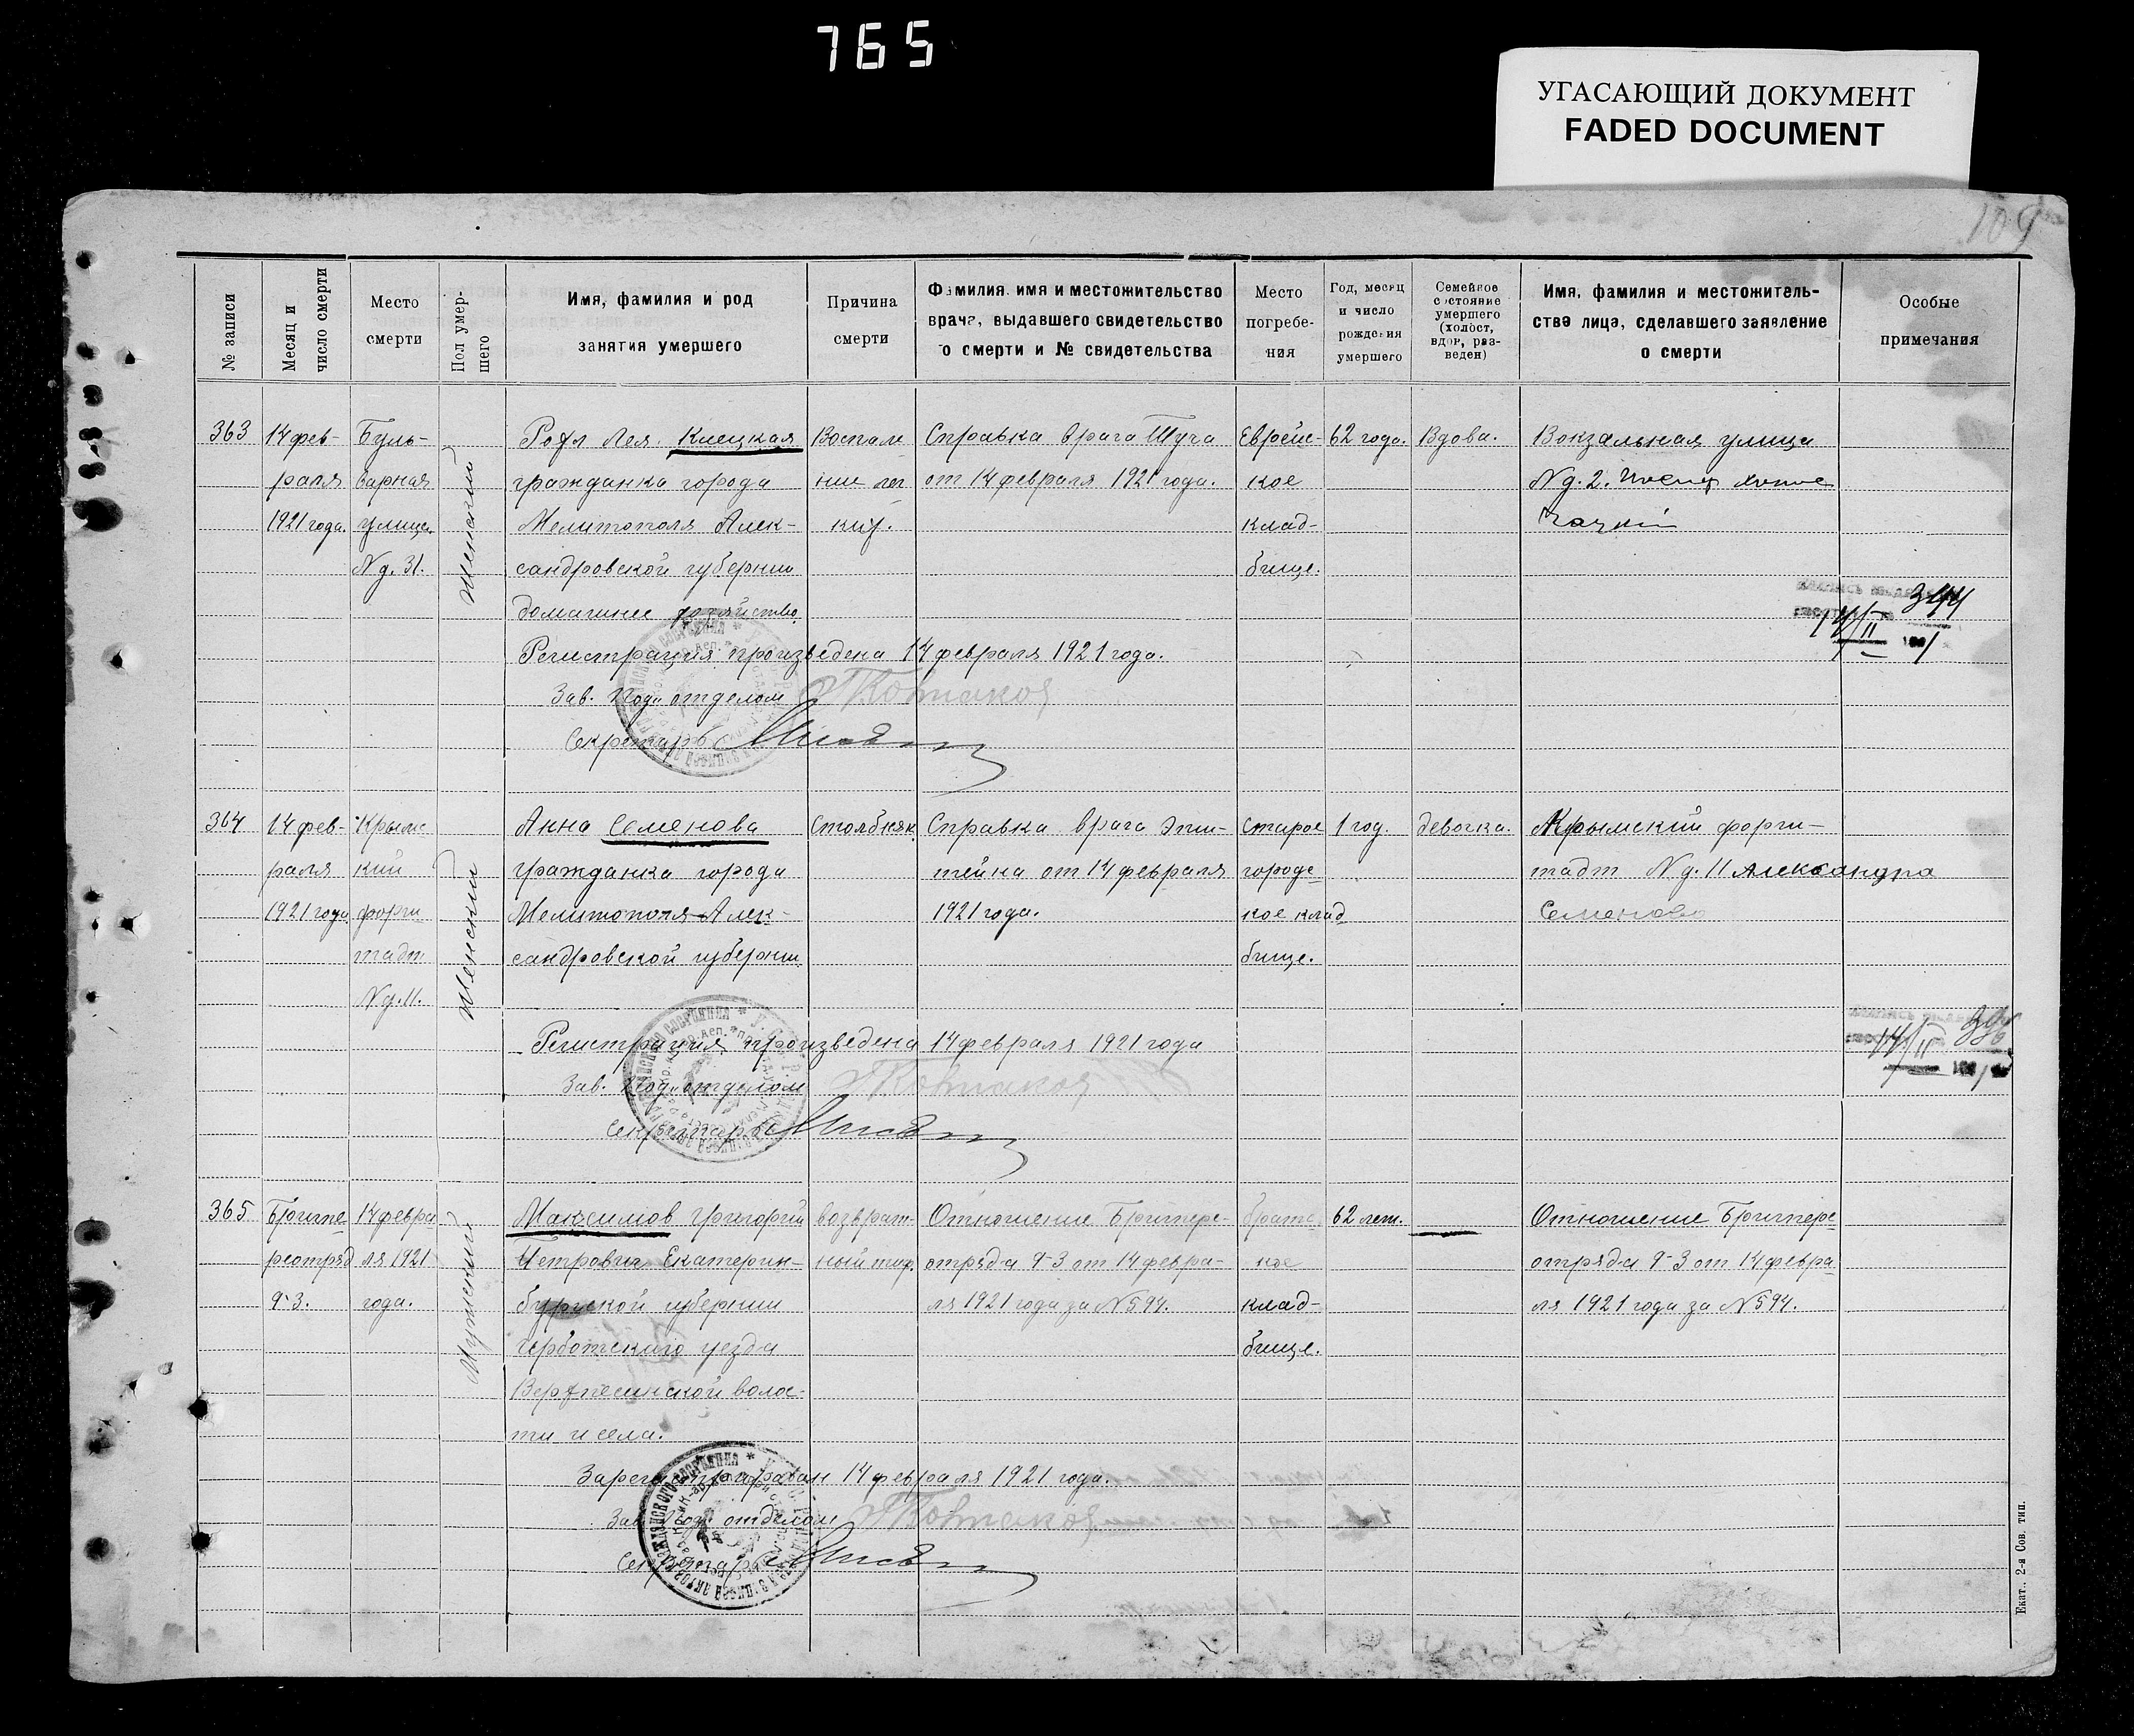 765
УГАСАЮЩИЙ ДОКУМЕНТ
FADED DOCUMENT
109
№ записи
Месяц и
число смерти
Место
смерти
Пол умер-
шего
Имя, фамилия и род
занятия умершего
Причина
смерти
Фамилия, имя и местожительство
врача, выдавшего свидетельство
о смерти и № свидетельства
Место
погребе-
ния
Год, месяц
и число
рождения
умершего
Семейное
состояние
умершего
(холост,
вдов, раз-
веден)
Имя, фамилия и местожитель-
ства лица, сделавшего заявление
о смерти
Особые
примечания
363
14 фев-
раля
1921 года.
Буль-
варная
улица
N д. 31.
Женский
Лея Клецкая
гражданка города
Мелитополя Алек-
сандровской губернии
домашнее хозяйство.
Воспале
ние лег
ких.
Справка врача Шуча
от 14 февраля 1921 года.
Еврейс-
кое
клад-
бище.
62 года.
Вдова.
Вокзальная улица
N д. 2.
344
14/II
Регистрация произведена 14 февраля 1921 года.
Зав. Под. отделом
Секретарь
364
14 фев-
раля
1921 года
Крымс
кий
форш
тадт
N д. 11.
Женский
Анна Семенова
гражданка города
Мелитополя Алек-
сандровской губернии
Столбняк
Справка врача Эпш-
тейна от 14 февраля
1921 года.
Старое
городс
кое клад
бище.
1 год.
девочка.
Крымский форш-
тадт N д. 11 Александра
Семенова
14/II
Регистрация произведена 14 февраля 1921 года
Зав. Под. отделом
Секретарь
365
Бриг пе
реотряд
9-3.
14 февра
ля 1921
года.
Мужской
Максимов Григорий
Петрович Екатерин-
бургской губернии
уезда
волос-
ти и села.
возврат-
ный тиф
Отношение Бригпере-
отряда 9-3 от 14 февра-
ля 1921 года за N 594.
братс
кое
клад-
бище.
62 лет.
Отношение Бригпере
отряда 9-3 от 14 февра
ля 1921 года за N 594.
Зарегистрирован 14 февраля 1921 года.
Зав. Под. отделом
Секретарь
Екат., 2-я Сов. тип.